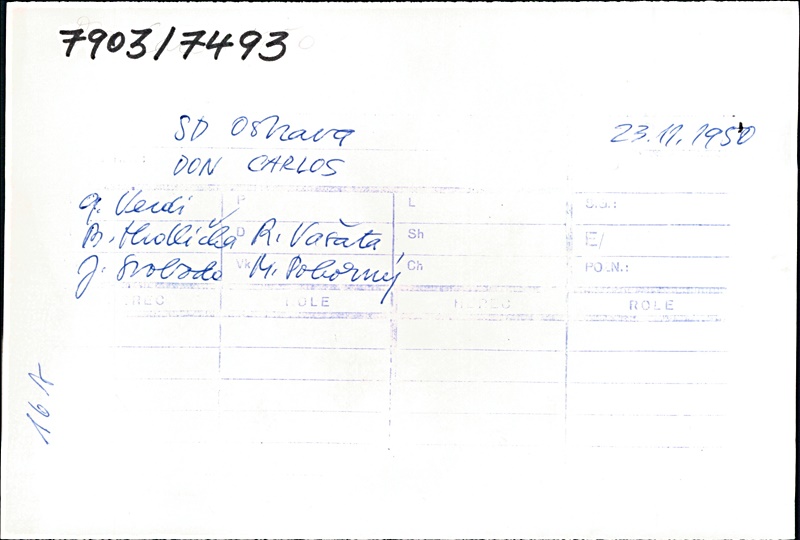 7903/7493
SD Ostrava 23.11.1950
DON CARLOS
G. Verdi P L S.D.:
B. Hrdlička D R. Vašata Sh E/
J. Svoboda Vk M. Pokorný Ch POZN.:
HEREC ROLE HEREC ROLE
16 A